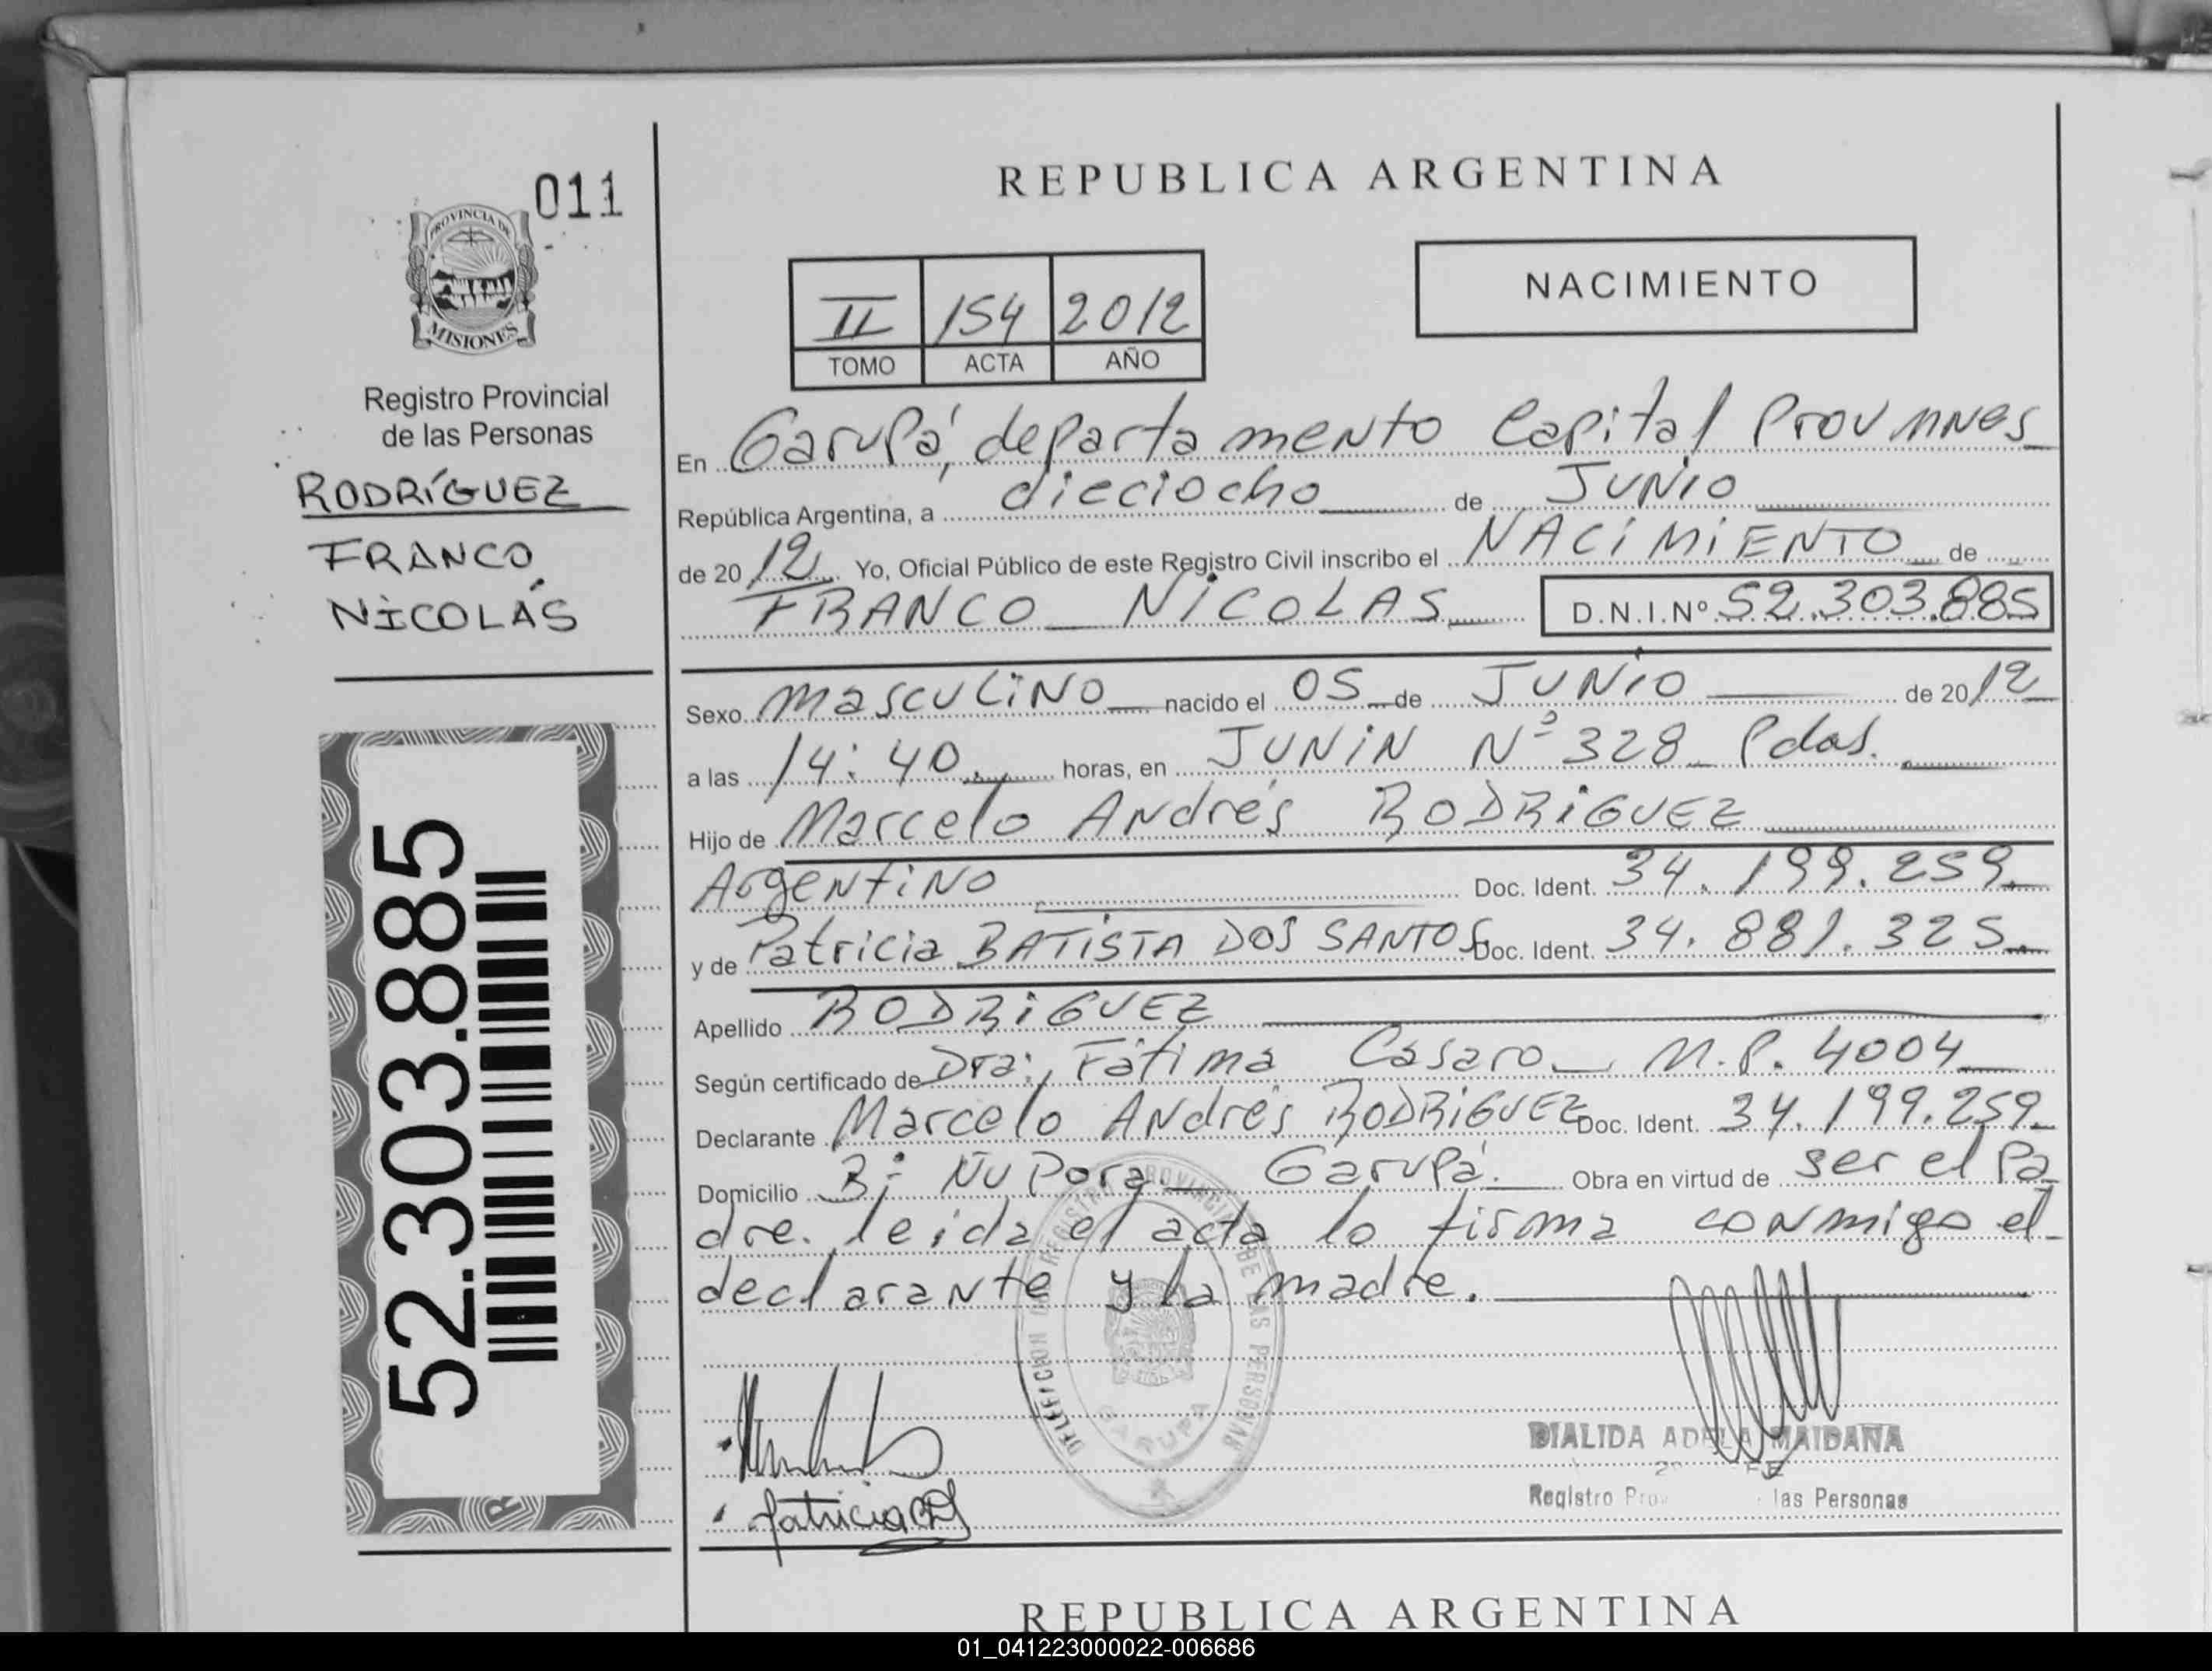 REPUBLICA ARGENTINA
011
PROVINCIA DE
MISIONES
Registro Provincial
de las Personas
RODRÍGUEZ
FRANCO
NICOLÁS
52.303.885
NACIMIENTO
II 154 2012
TOMO ACTA AÑO
En Garupá, departamento Capital Prov Mnes
República Argentina, a dieciocho de JUNIO
de 2012 Yo, Oficial Público de este Registro Civil inscribo el NACIMIENTO de
FRANCO NICOLAS D.N.I.Nº 52.303.885
Sexo masculino nacido el 05 de JUNIO de 2012
a las 14:40 horas, en JUNIN Nº 328 Pdas.
Hijo de Marcelo Andrés RODRIGUEZ
Argentino Doc. Ident. 34.199.259
y de Patricia BATISTA DOS SANTOS Doc. Ident. 34.881.325
Apellido RODRIGUEZ
Según certificado de Dra: Fátima Casaro M.P. 4004
Declarante Marcelo Andrés RODRIGUEZ Doc. Ident. 34.199.259
Domicilio B: Ñu Pora Garupá. Obra en virtud de ser el Pa
dre. leida el acta lo firma conmigo el
declarante y la madre.
REGISTRO PROVINCIAL DE LAS PERSONAS
DELEGACION
GARUPA
DIALIDA ADELA MAIDANA
Registro las Personas
Patricia
REPUBLICA ARGENTINA
01_041223000022-006686